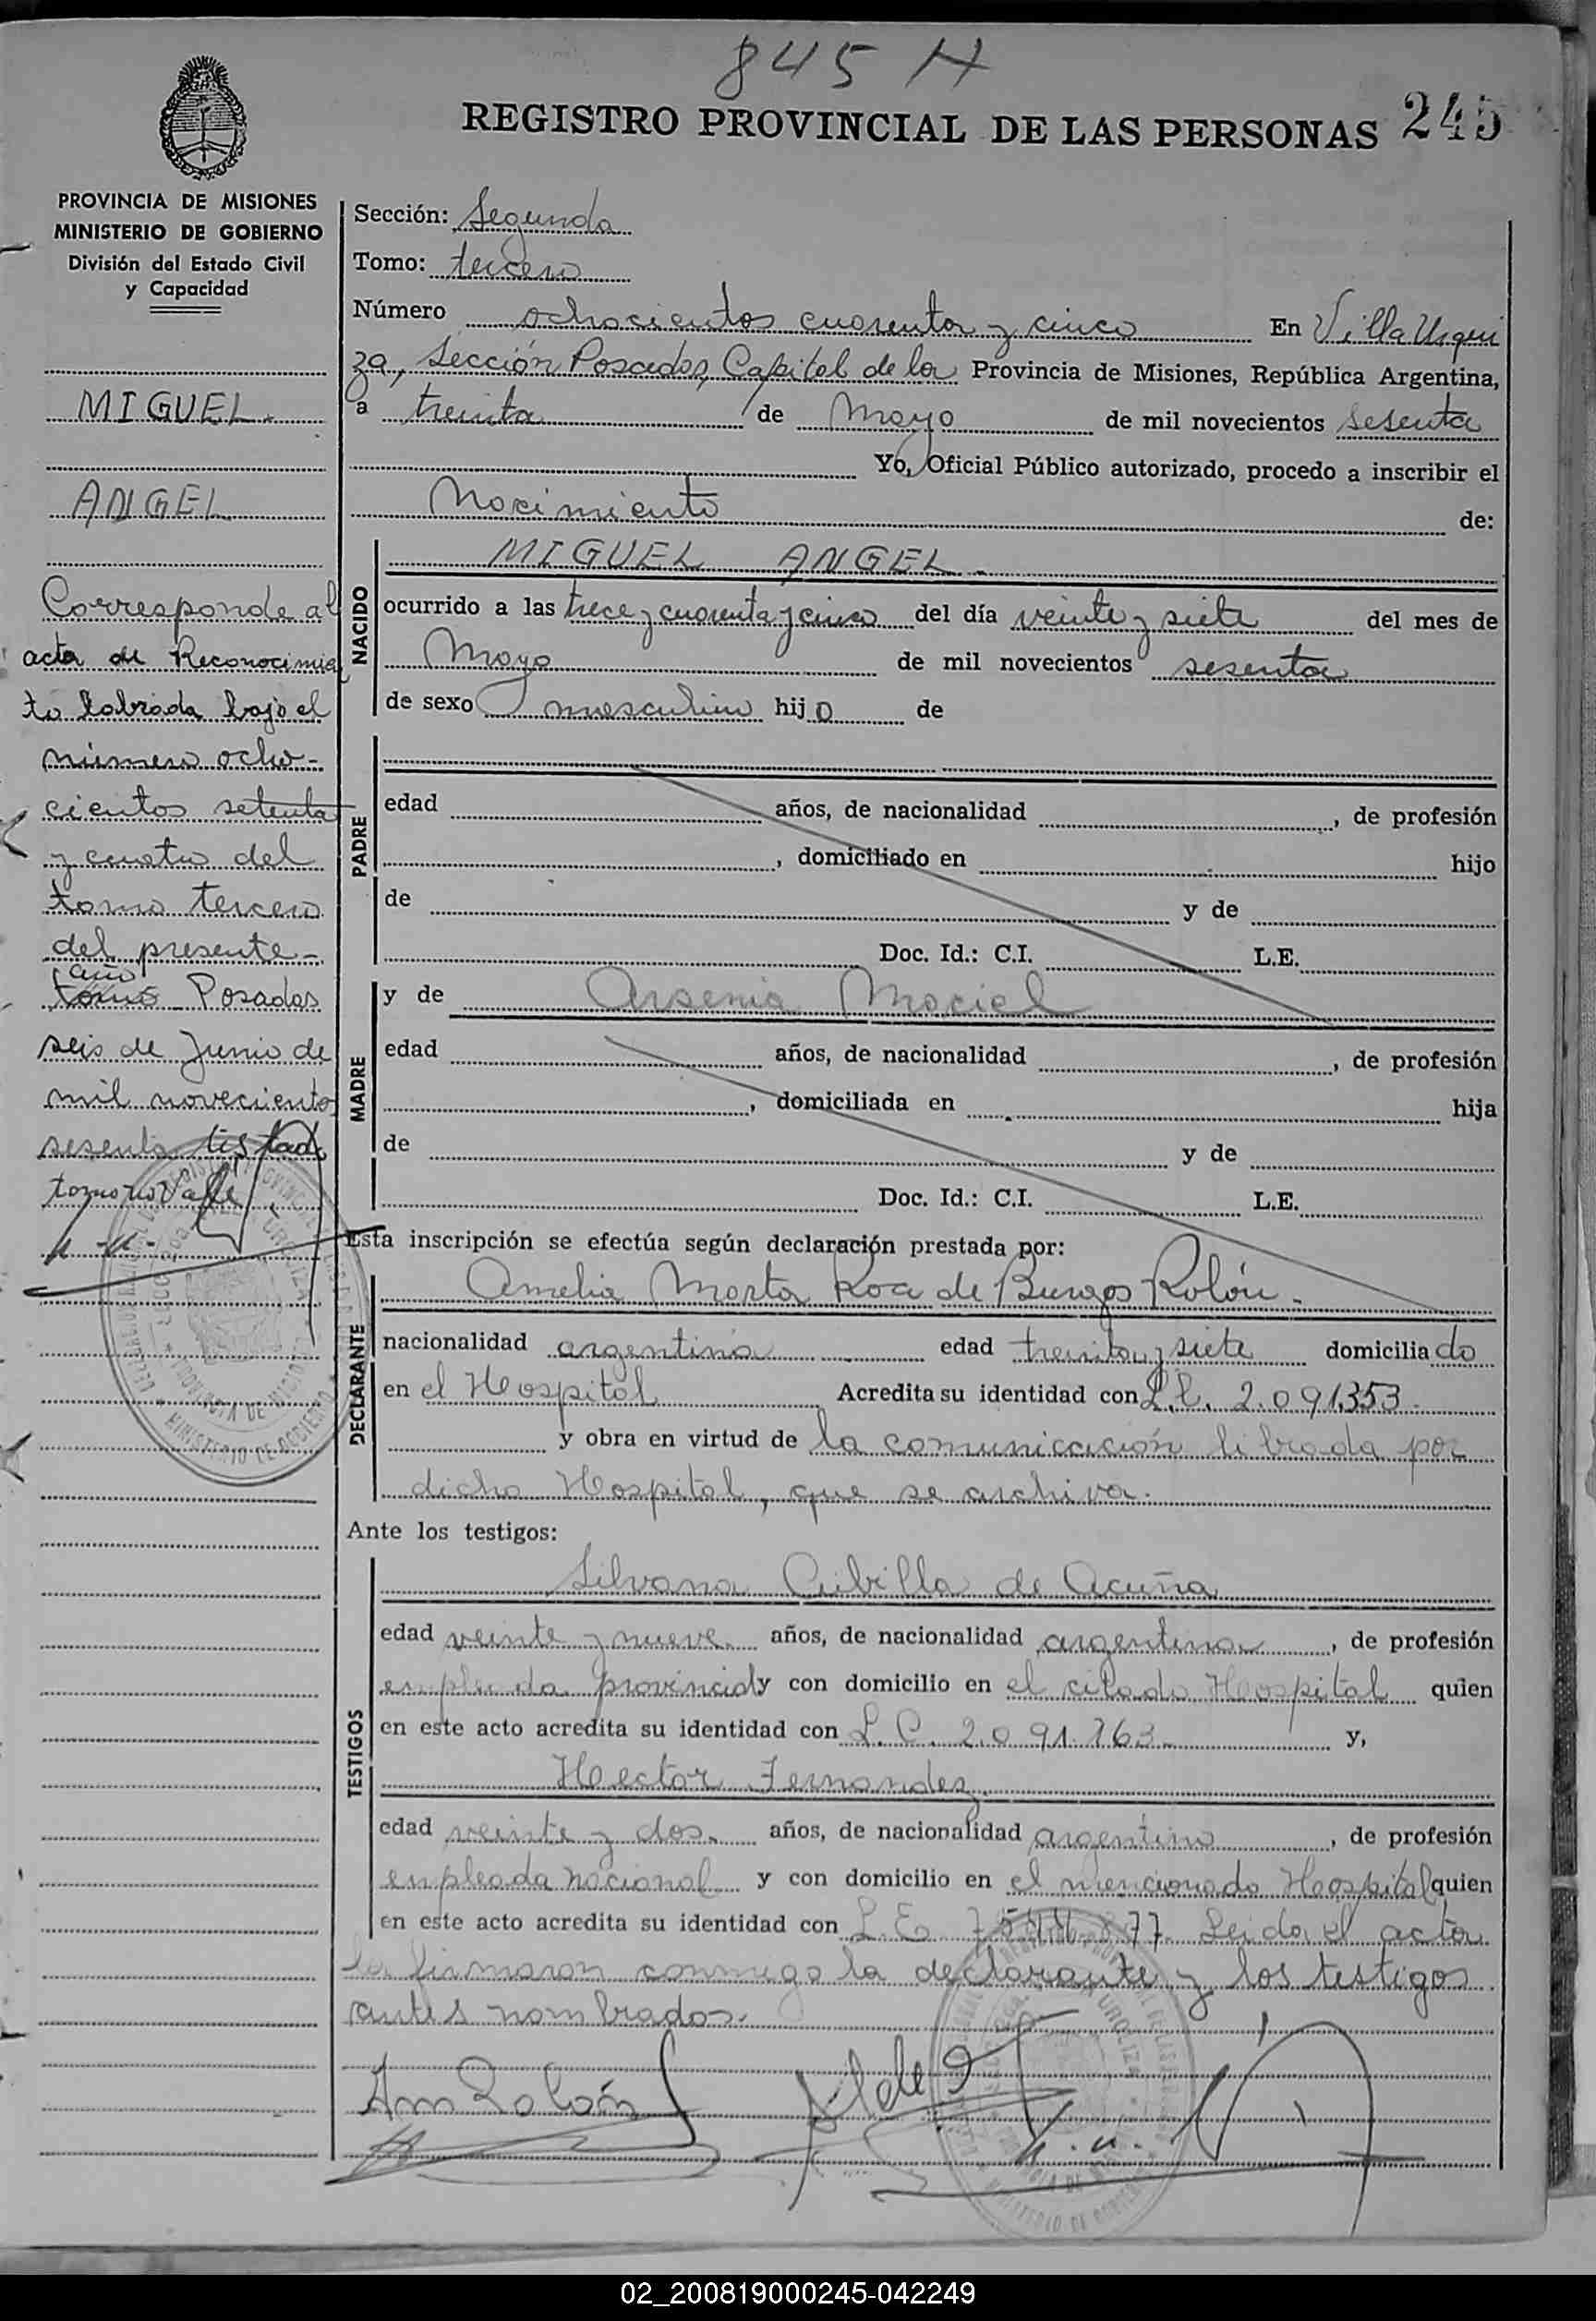 845 H
REGISTRO PROVINCIAL DE LAS PERSONAS 245
PROVINCIA DE MISIONES
MINISTERIO DE GOBIERNO
División del Estado Civil
y Capacidad
MIGUEL
ANGEL
Corresponde al
acta de Reconocimien
to labrada bajo el
número ocho-
cientos setenta
y cuatro del
tomo tercero
del presente-
año
tomo Posadas
seis de Junio de
mil novecientos
sesenta testado
tomo no vale
Sección: Segunda
Tomo: tercero
Número ochocientos cuarenta y cinco En Villa Urqui
za, Sección Posadas, Capital de la Provincia de Misiones, República Argentina,
a treinta de Mayo de mil novecientos sesenta
Yo, Oficial Público autorizado, procedo a inscribir el
Nacimiento de:
NACIDO
MIGUEL ANGEL.
ocurrido a las trece y cuarenta y cinco del día veinte y siete del mes de
Mayo de mil novecientos sesenta
de sexo masculino hijo de
PADRE
edad años, de nacionalidad , de profesión
, domiciliado en hijo
de y de
Doc. Id.: C.I. L.E.
MADRE
y de Arsenia Maciel
edad años, de nacionalidad , de profesión
, domiciliada en hija
de y de
Doc. Id.: C.I. L.E.
Esta inscripción se efectúa según declaración prestada por:
DECLARANTE
Amelia Marta Roa de Burgos Rolón.
nacionalidad argentina edad treinta y siete domiciliado
en el Hospital Acredita su identidad con L.C. 2.091.353.
y obra en virtud de la comunicación librada por
dicho Hospital, que se archiva.
Ante los testigos:
TESTIGOS
Silvana Cubilla de Acuña
edad veinte y nueve años, de nacionalidad argentina , de profesión
empleada provincial y con domicilio en el citado Hospital quien
en este acto acredita su identidad con L.C. 2.091.163 y,
Hector Fernandez
edad veinte y dos años, de nacionalidad argentino , de profesión
empleada nacional y con domicilio en el mencionado Hospital quien
en este acto acredita su identidad con L.E. Leida el acta
la firmaron conmigo la declarante y los testigos
antes nombrados.
Am Rolón
02_200819000245-042249